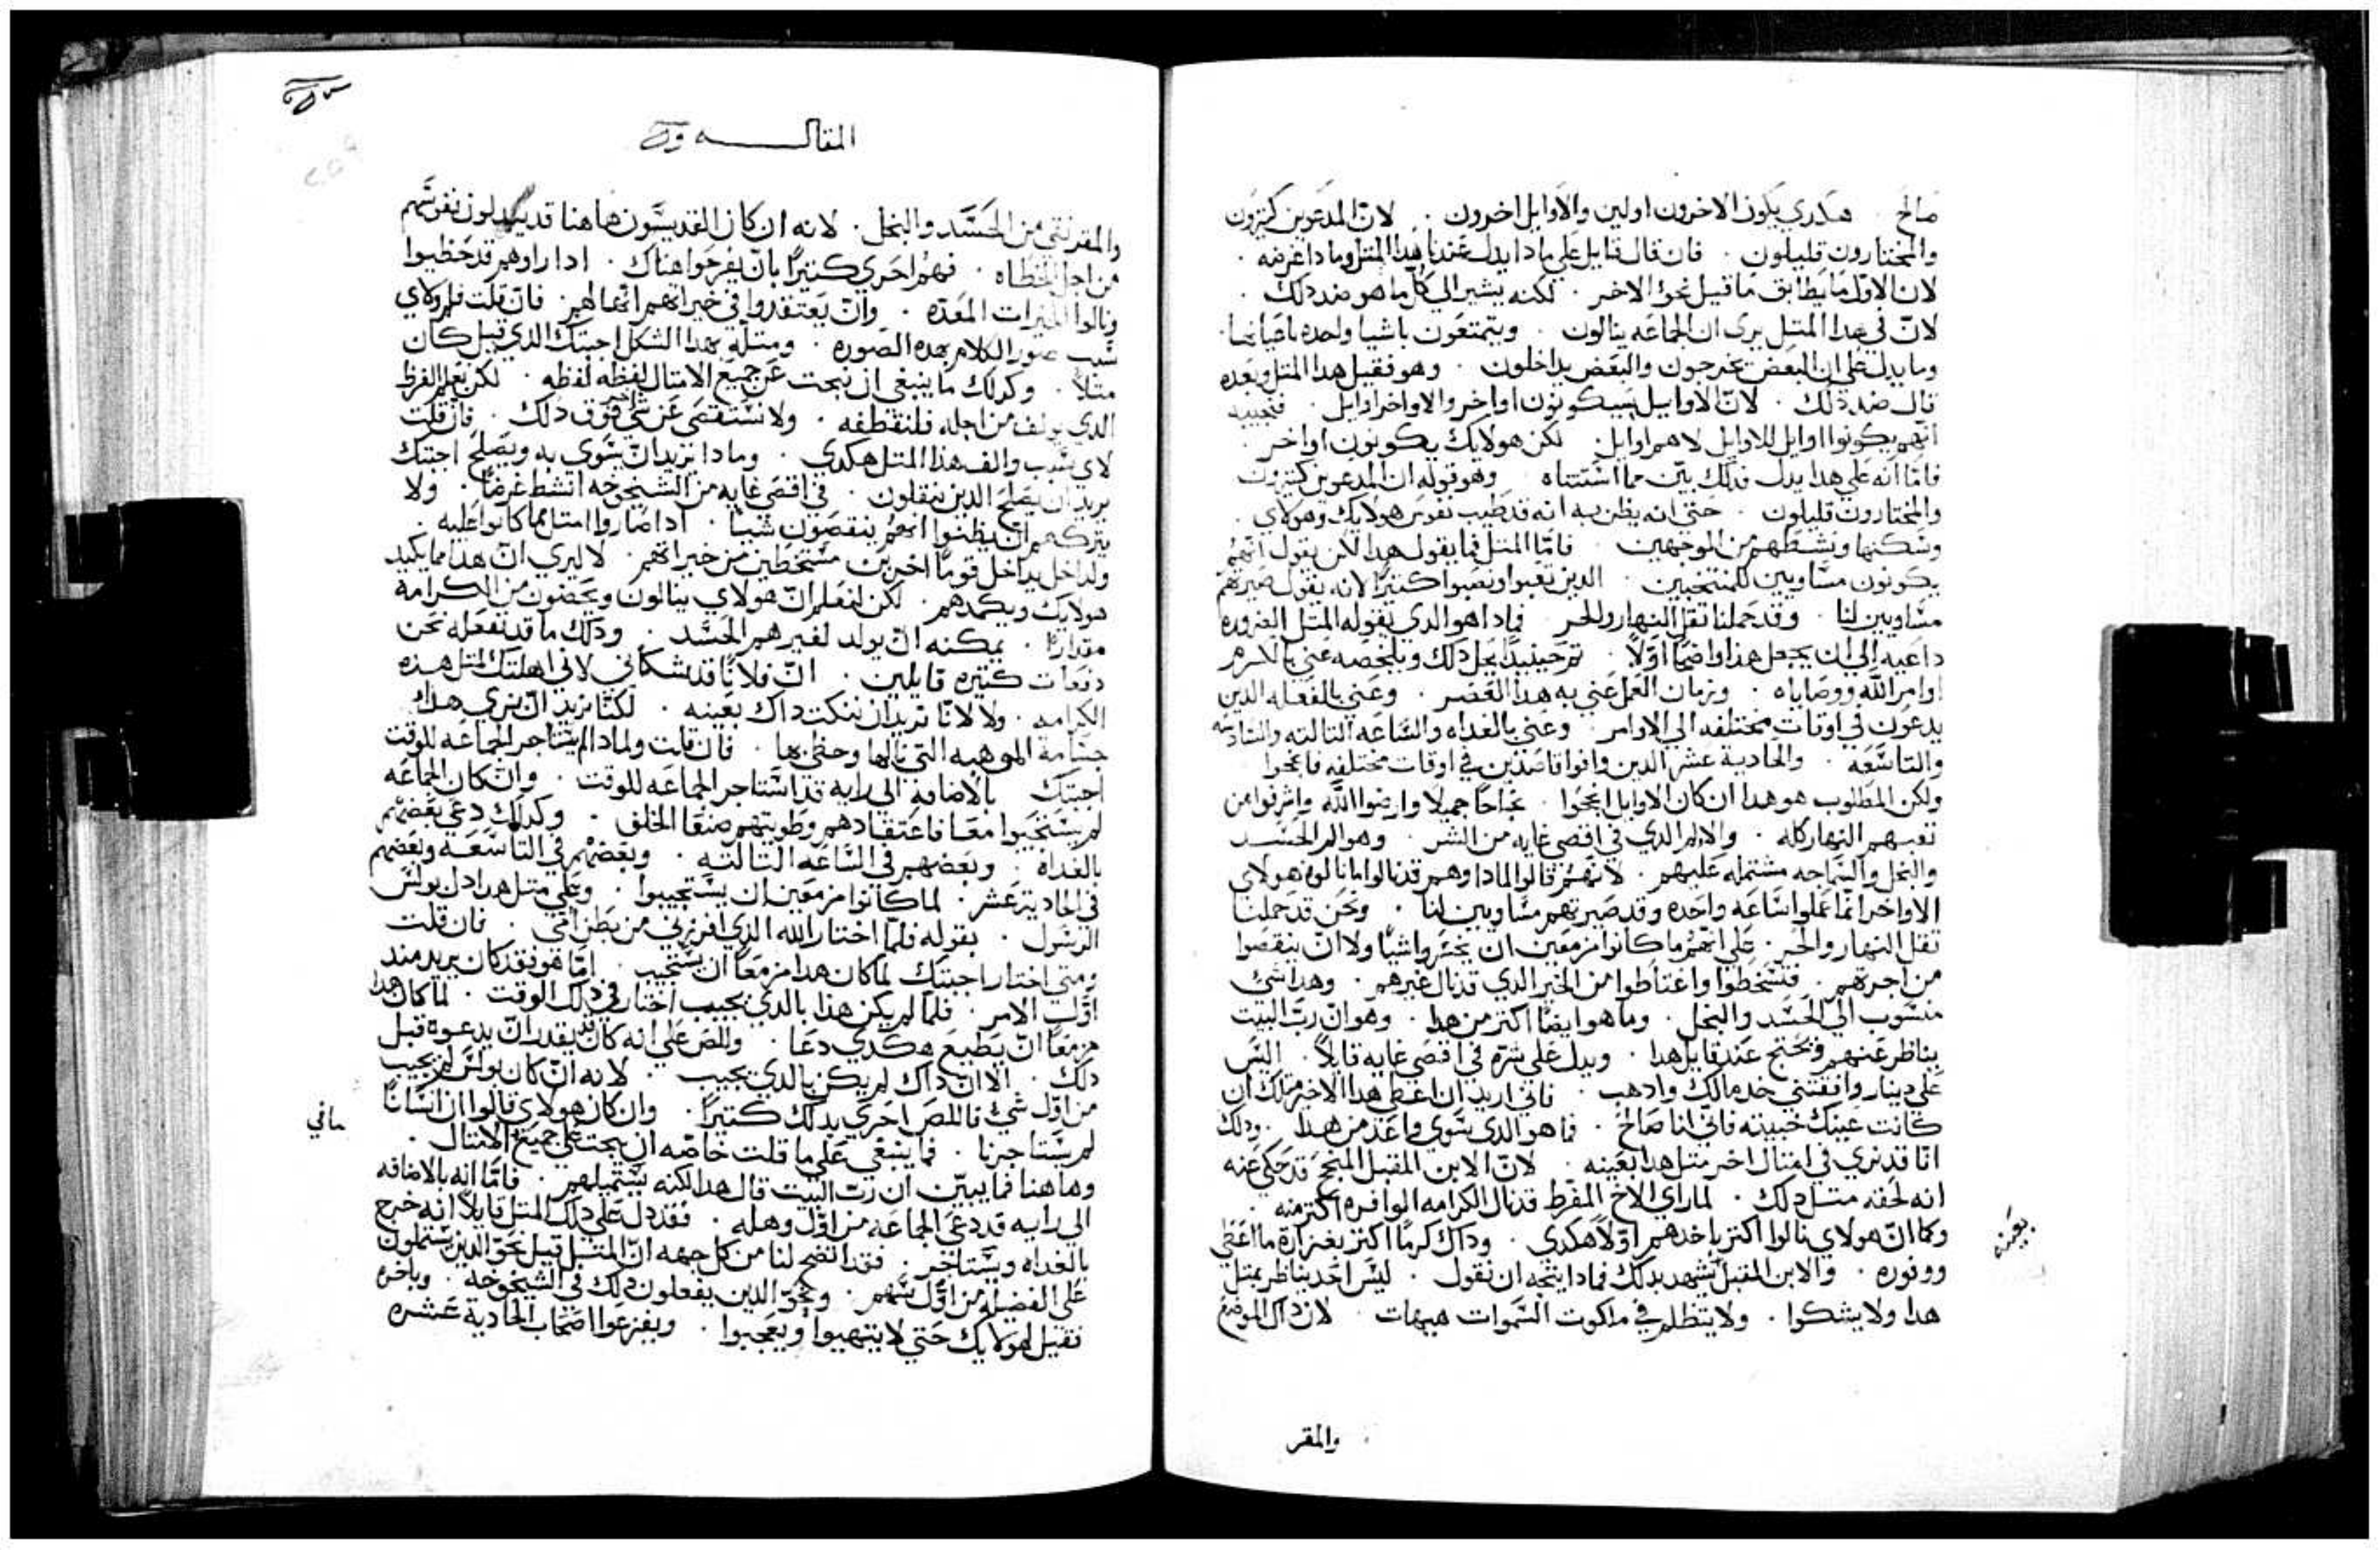 صالح . هكدي يكون الاخرون اولين والاوايل اخرون . لان المدعوين كتيرون
والمختارون قليلون . فان قال قايل علي مادا يدل عندنا هدا المتل وما دا غرضه .
لان الاول ما يطابق ما قيل نحو الاخر . لكنه يشير الي كل ما هو ضد دلك .
لان في هدا المتل يري ان الجماعه ينالون . ويتمتعون باشيا واحده باعيانها .
وما يدل علي ان البعض يخرجون والبعض يداخلون . وهو فقيل هدا المتل وبعده
قال ضد دلك . لان الاوايل سيكونون اواخر والاواخر اوايل . فنجيبه
انهم يكونوا اوايل للاوايل لا هم اوايل . لكن هولايك يكونون اواخر .
فاما انه علي هدا يدل فدلك بين مما استتناه وهو قوله ان المدعوين كتيرون
والمختارون قليلون . حتي انه يظن به انه قد طيب نفوس هولايك وهولاي .
وسكنها ونشطهم من الموجهين . فاما المتل فما يقول هدا لان يقول انهم
يكونون مساويين للمنتخبين . الدين تعبوا ونصبوا كتيرا لانه يقول صيرتهم
مساويين لنا . وقد حملنا تقل النهار والحر . فمادا هو الدي يقوله المتل الضروره
داعيه الي ان يجعل هذا واضحا اولا . تم حينيد يحل دلك ويلخصه عني بالكرم
اوامر الله ووصاياه . وزمان العمل عني به هدا العصر . وعني بالفعله الدين
يدعون في اوقات مختلفه الي الاوامر . وعني بالغداه والساعه التالته والسادسه
والتاسعه . والحادية عشر الدين وافوا قاصدين في اوقات مختلفه فانجحوا
ولكن المطلوب هو هدا ان كان الاوايل انجحوا . نجاحا جميلا وارضوا الله واشرفوا من
تعبهم النهار كله . والالم الدي في اقصي غايه من الشر . وهو الم الحسد
والبخل والسماجه مشتمله عليهم . لانهم قالوا لمادا وهم قد نالوا ما نالوه هولاي
الاواخر انما عملوا ساعه واحده وقد صيرتهم مساويين لنا . ونحن قد حملنا
تقل النهار والحر . علي انهم ما كانوا مزمعين ان يخسروا شيا ولا ان ينقصوا
من اجرتهم . فتسخطوا واغتاظوا من الخير الدي قد نال غيرهم . وهدا شي
منسوب الي الحسد والبخل . وما هو ايضا اكتر من هدا . وهو ان رب البيت
يناظر عنهم ويحتج عند قايل هدا . ويدل علي شره في اقصي غايه قايلا . اليس
علي دينار وافقتني خد مالك وادهب . فاني اريد ان اعطي هدا الاخير متلك ان
كانت عينك خبيته فاني انا صالح . فما هو الدي يسوي واعد من هدا . ودلك
انا قد نري في امتال اخر متل هدا بعينه . لان الابن المقبل المنجح قد حكي عنه
انه لحقه متل دلك . لما راي الاخ المفرط قد نال الكرامه الوافره اكتر منه .
وكما ان هولاي نالوا اكتر باخدهم اولا هكدي . وداك كرما اكتر بغزارة ما اعطي
بعينه
ووفوره . والابن المقبل يشهد بدلك فمادا يتجه ان نقول . ليس احد يناظر بمتل
هدا ولا يشكوا . ولا يتظلم في ملكوت السموات هيهات . لان داك الموضع
والمقر
المقالـــه
والمقر نقي من الحسد والبخل . لانه ان كان القديسون هاهنا قد يبدلون نفوسهم
من اجل الخطاه . فهم احري كتيرا بان يفرحوا هناك . ادا راوهم قد حظيوا
ونالوا الخيرات المعده . وان يعتقدوا في خيراتهم انها لهم . فان قلت فلم ولاي
سبب صور الكلام بهده الصوره . ومتله بهدا الشكل اجبتك الدي قيل كان
متلا . وكدلك ما ينبغي ان نبحت عن جميع الامتال لفظه لفظه . لكن نعلم الغرض
الدي يولف من اجله فلنقتطفه . ولا نستقصي عن شي اخر فوق دلك . فان قلت
لاي سبب والف هذا المتل هكدي . ومادا يريد ان يسوي به ويصلح اجبتك
يريد ان يصلح الدين ينقلون . في اقصي غايه من الشيخوخه انشط غرضا . ولا
يتركهم ان يظنوا انهم ينقصون شيا . ادا صاروا امتل مما كانوا عليه .
ولداخل يداخل قوما اخرين مستخطين من خيراتهم . لا ليري ان هدا مما يكيد
هولايك ويكمدهم . لكن لنعلم ان هولاي ينالون ويحضون من الكرامه
مقدارا . يمكنه ان يولد لغيرهم الحسد . ودلك ما قد نفعله نحن
دفعات كتيره قايلين . ان فلانا قد شكاني لاني اهلتك لمتل هده
الكرامه . ولا لانا نريد ان ننكت داك بعينه . لكنا نريد ان نري هداك
جسامة الموهبه التي نالها وحظي بها . فان قلت ولمادا لم يستاجر الجماعه للوقت
اجبتك بالاضافه الي رايه قد استاجر الجماعه للوقت . وان كان الجماعه
لم يستجيبوا معا فاعتقادهم وطويتهم صنفا الخلف . وكدلك دعي بعضهم
بالغداه . وبعضهم في الساعه التالته . وبعضهم في التاسعه وبعضهم
في الحادية عشر . لما كانوا مزمعين ان يستجيبوا . وعلي متل هدا دل بولس
الرسول . بقوله فلما اختار الله الذي افرزني من بطن امي . فان قلت
ومتي اختار اجبتك لما كان هدا مزمعا ان يستجيب . اما هو فقد كان يريد مند
اول الامر . فلما لم يكن هذا بالدي يجيب اختار في دلك الوقت . لما كان هدا
مزمعا ان يطيع هكدي دعا . واللص علي انه كان قد يقدر ان يدعوه قبل
دلك . الا ان داك لم يكن بالدي يجيب . لانه ان كان بولس لم يجيب
من اول شي فاللص احري بدلك كتيرا . وان كان هولاي قالوا ان انسانا
مافي
لم يستاجرنا . فما ينبغي علي ما قلت خاصه ان يبحت علي جميع الامتال .
وهاهنا فما يبين ان رب البيت قال هدا لكنه يستميلهم . فاما انه بالاضافه
الي رايه قد دعي الجماعه من اول وهله . فقد دل علي دلك المتل قايلا انه خرج
بالغداه ويستاجر . فقد اتضح لنا من كل جهه ان المتل قيل نحو الدين يشتملون
علي الفضيله من اول سنهم . ونحو الدين يفعلون دلك في الشيخوخه . وباخره
فقيل لهولايك حتي لا يتنهبوا ويعجبوا . ويفزعوا اصحاب الحادية عشره